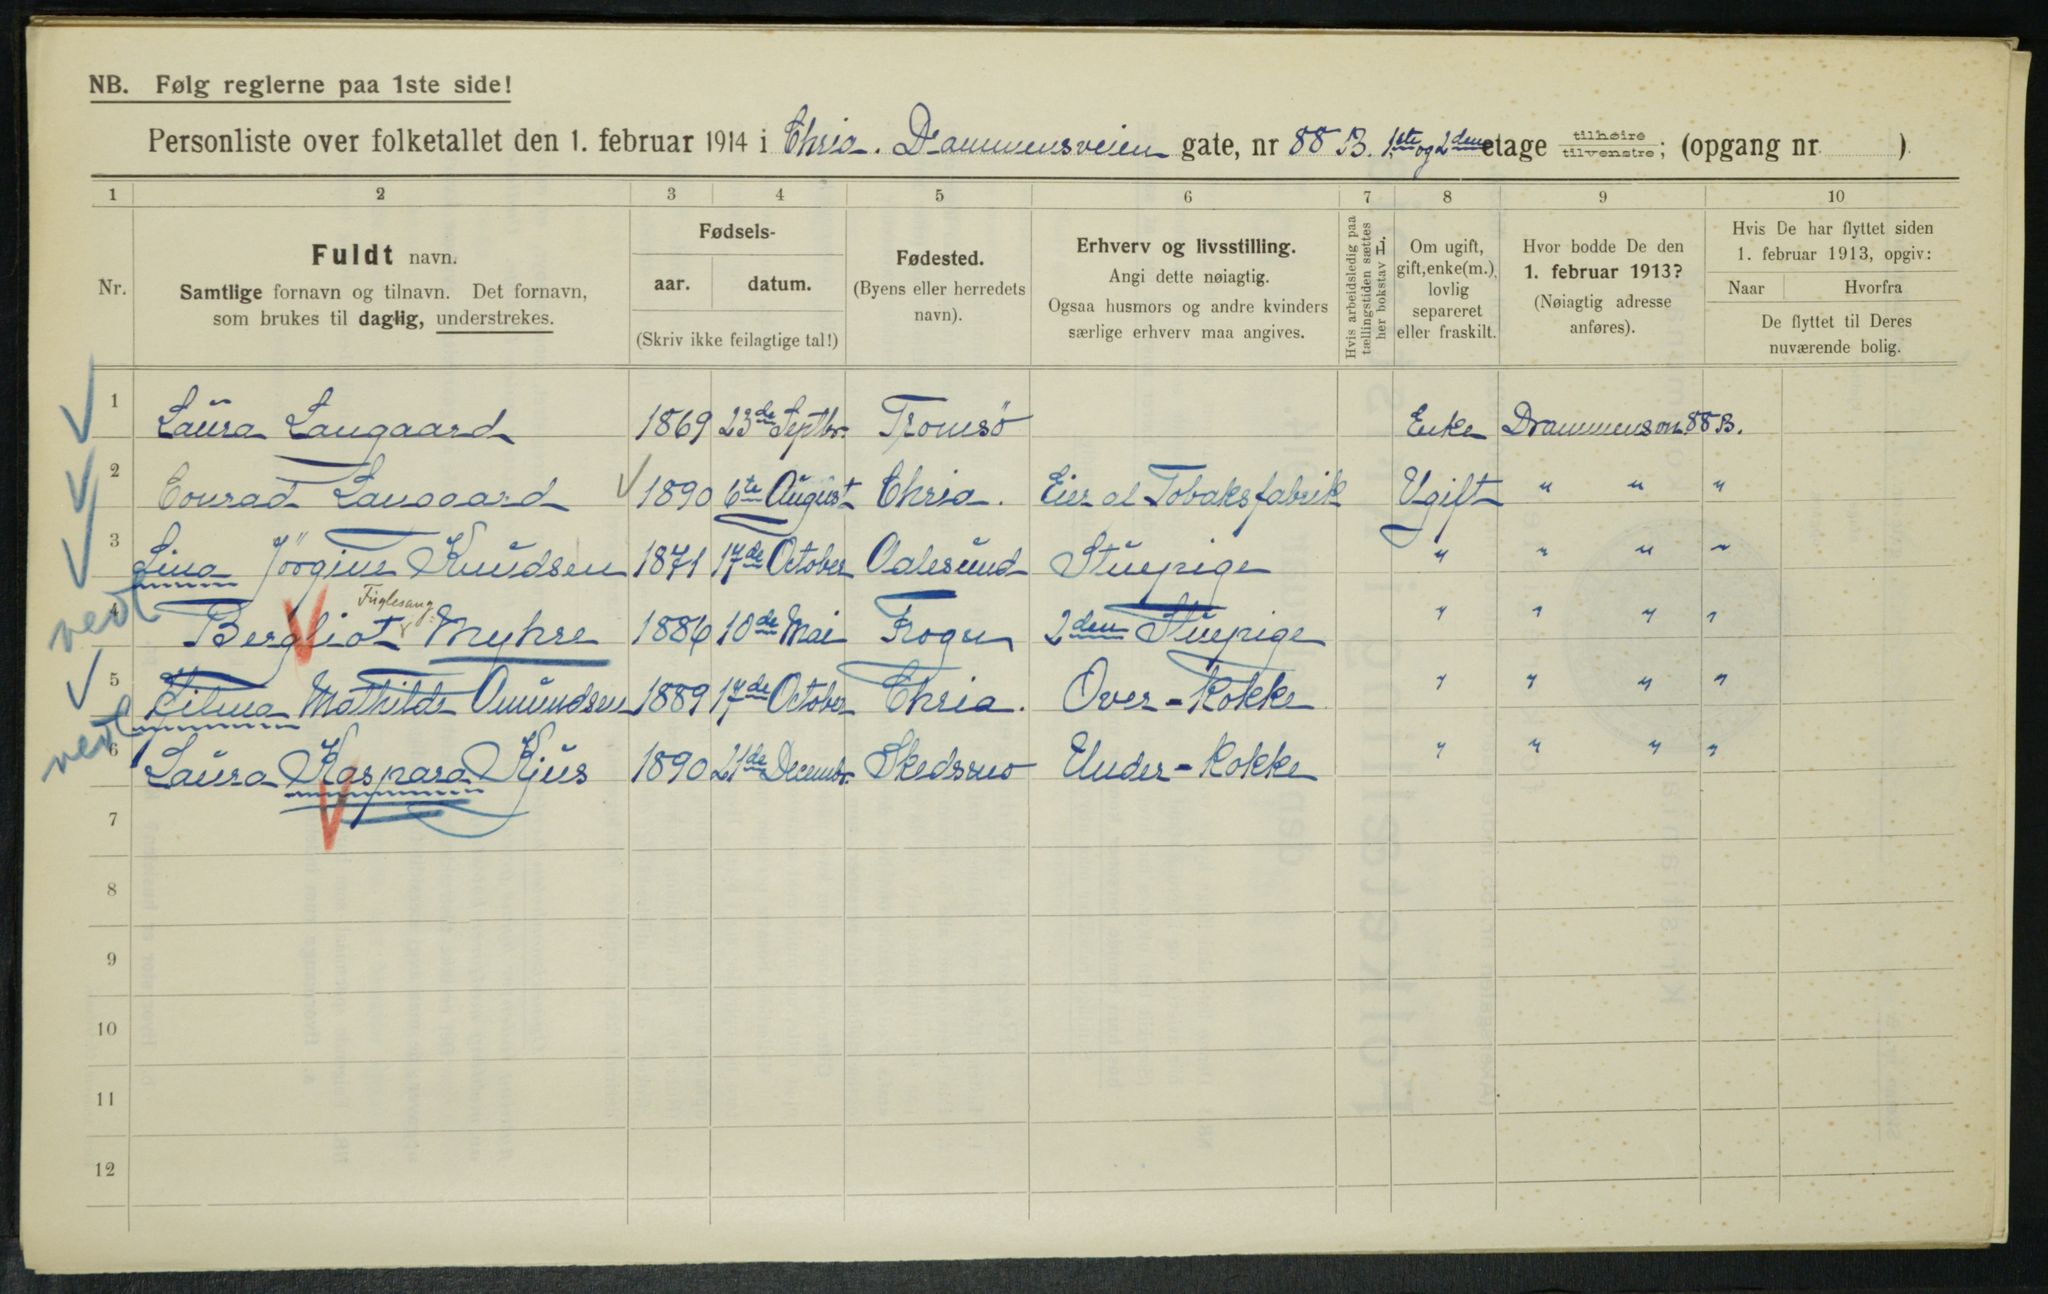 NB. Følg reglerne paa 1ste side!
Personliste over folketallet den 1. februar 1914 i Chria. Drammensveien gate, nr 88 B. 1ste og 2den etage tilhøire tilvenstre; (opgang nr )
1 2 3 4 5 6 7 8 9 10
Nr.
Fuldt navn.
Samtlige fornavn og tilnavn. Det fornavn,
som brukes til daglig, understrekes.
Fødsels-
aar. datum.
(Skriv ikke feilagtige tal!)
Fødested.
(Byens eller herredets
navn).
Erhverv og livsstilling.
Angi dette nøiagtig.
Ogsaa husmors og andre kvinders
særlige erhverv maa angives.
Hvis arbeidsledig paa
tællingstiden sættes
her bokstav i
Om ugift,
gift, enke(m.),
lovlig
separeret
eller fraskilt.
Hvor bodde De den
1. februar 1913?
(Nøiagtig adresse
anføres).
Hvis De har flyttet siden
1. februar 1913, opgiv:
Naar Hvorfra
De flyttet til Deres
nuværende bolig.
1 Laura Langaard 1869 23de Septbr. Tromsö Enke Drammensvn 88 B.
2 Conrad Langaard 1890 6te August Chria. Eier al Tobaksfabrik Ugift " " "
3 Lina Jörgine Knudsen 1871 17de October Aalesund Stuepige " " " "
Fuglesang
4 Bergliot Myhre 1886 10de Mai Frogn 2den Stuepige " " " "
5 Hilma Mathilde Amundsen 1889 17de October Chria. Over-Kokke " " " "
6 Laura Kaspara Kjus 1890 21de Decembr. Skedsmo Under-Kokke " " " "
7
8
9
10
11
12